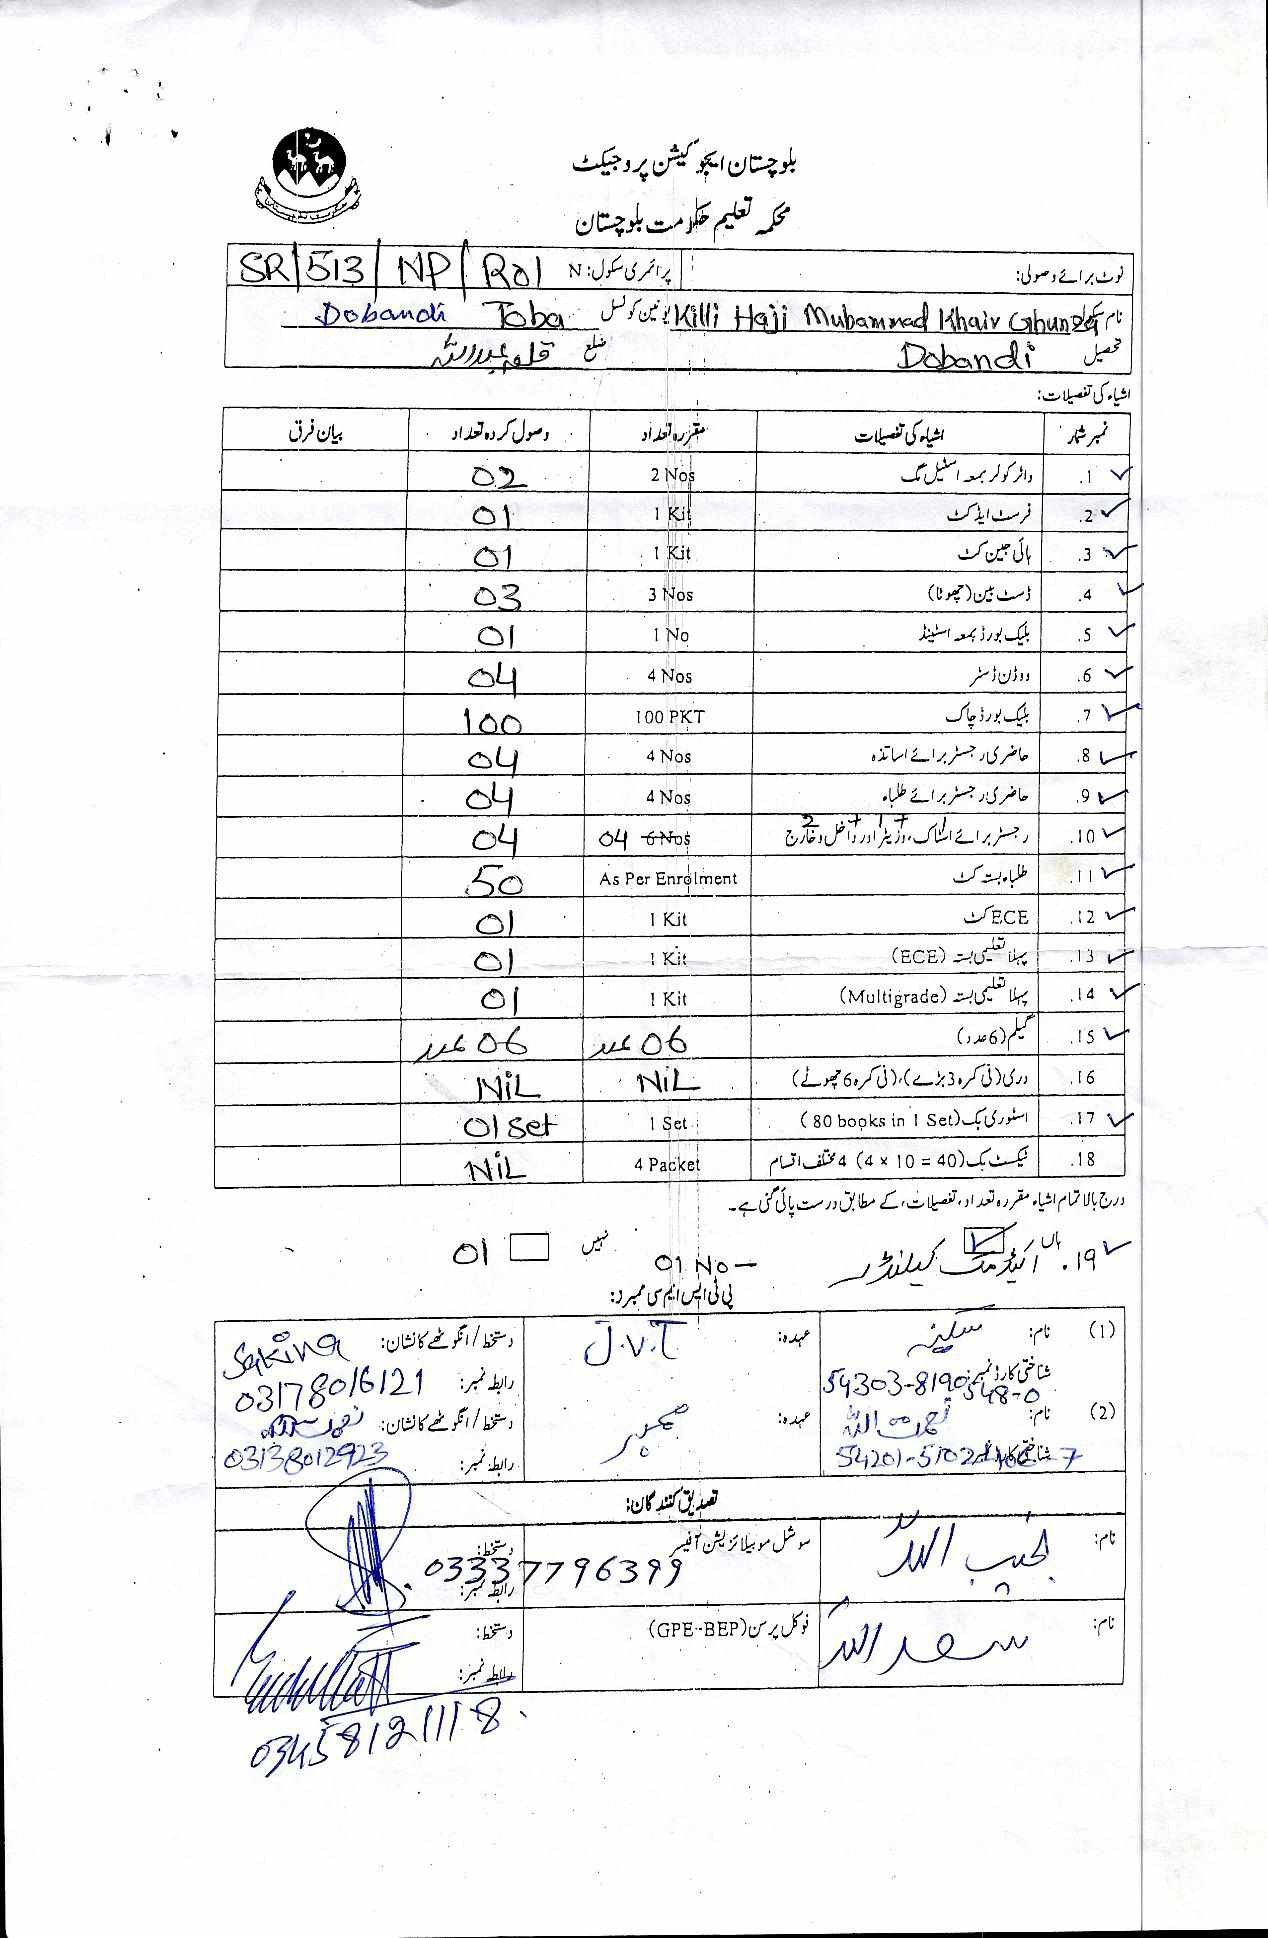 بلوچستان ایجوکیشن پروجیکٹ
محکمہ تعلیم حکومت بلوچستان
نوٹ برائے وصولی: پرائمری سکول: N SR/513/NP/R01
نام سکول Killi Haji Muhammad Khair Ghunza یونین کونسل Dobandi Toba
تحصیل Dobandi ضلع قلعہ عبداللہ
اشیاء کی تفصیلات:
نمبر شمار اشیاء کی تفصیلات مقررہ تعداد وصول کردہ تعداد بیان فرق
1. واٹر کولر بمعہ اسٹیل مگ 2 Nos 02
2. فرسٹ ایڈ کٹ 1 Kit 01
3. ہائی جین کٹ 1 Kit 01
4. ڈسٹ بین (چھوٹا) 3 Nos 03
5. بلیک بورڈ بمعہ اسٹینڈ 1 No 01
6. ووڈن ڈسٹر 4 Nos 04
7. بلیک بورڈ چاک 100 PKT 100
8. حاضری رجسٹر برائے اساتذہ 4 Nos 04
9. حاضری رجسٹر برائے طلباء 4 Nos 04
10. رجسٹر برائے اسٹاک، وزیٹر اور داخل و خارج 2 + 1 + 1 04 6 Nos 04
11. طلباء بستہ کٹ As Per Enrolment 50
12. ECE کٹ 1 Kit 01
13. پہلا تعلیمی بستہ (ECE) 1 Kit 01
14. پہلا تعلیمی بستہ (Multigrade) 1 Kit 01
15. گیلم (6 عدد) 06 عدد 06 عدد
16. دری (فی کمرہ 3 بڑے)، (فی کمرہ 6 چھوٹے) NiL NiL
17. اسٹوری بک (80 books in 1 Set) 1 Set 01 Set
18. ٹیکسٹ بک (4 × 10 = 40) 4 مختلف اقسام 4 Packet NiL
درج بالا تمام اشیاء مقررہ تعداد، تفصیلات کے مطابق درست پائی گئی ہے۔
ہاں نہیں
۱۹. اکیڈمک کیلنڈر 01 No 01
پی ٹی ایس ایم سی ممبرز:
(1) نام: سکینہ عہدہ: J.V.T دستخط/انگوٹھے کا نشان: Sakina
شناختی کارڈ نمبر 54303-8190548-0 رابطہ نمبر: 03178016121
(2) نام: نعمت اللہ عہدہ: ممبر دستخط/انگوٹھے کا نشان: نعمت اللہ
شناختی کارڈ 54201-5102 -7 رابطہ نمبر: 03138012923
تصدیق کنندگان:
نام: نجیب اللہ سوشل موبیلائزیشن آفیسر دستخط:
رابطہ نمبر: 03337796399
نام: سعد اللہ فوکل پرسن (GPE-BEP) دستخط:
رابطہ نمبر:
03458121118